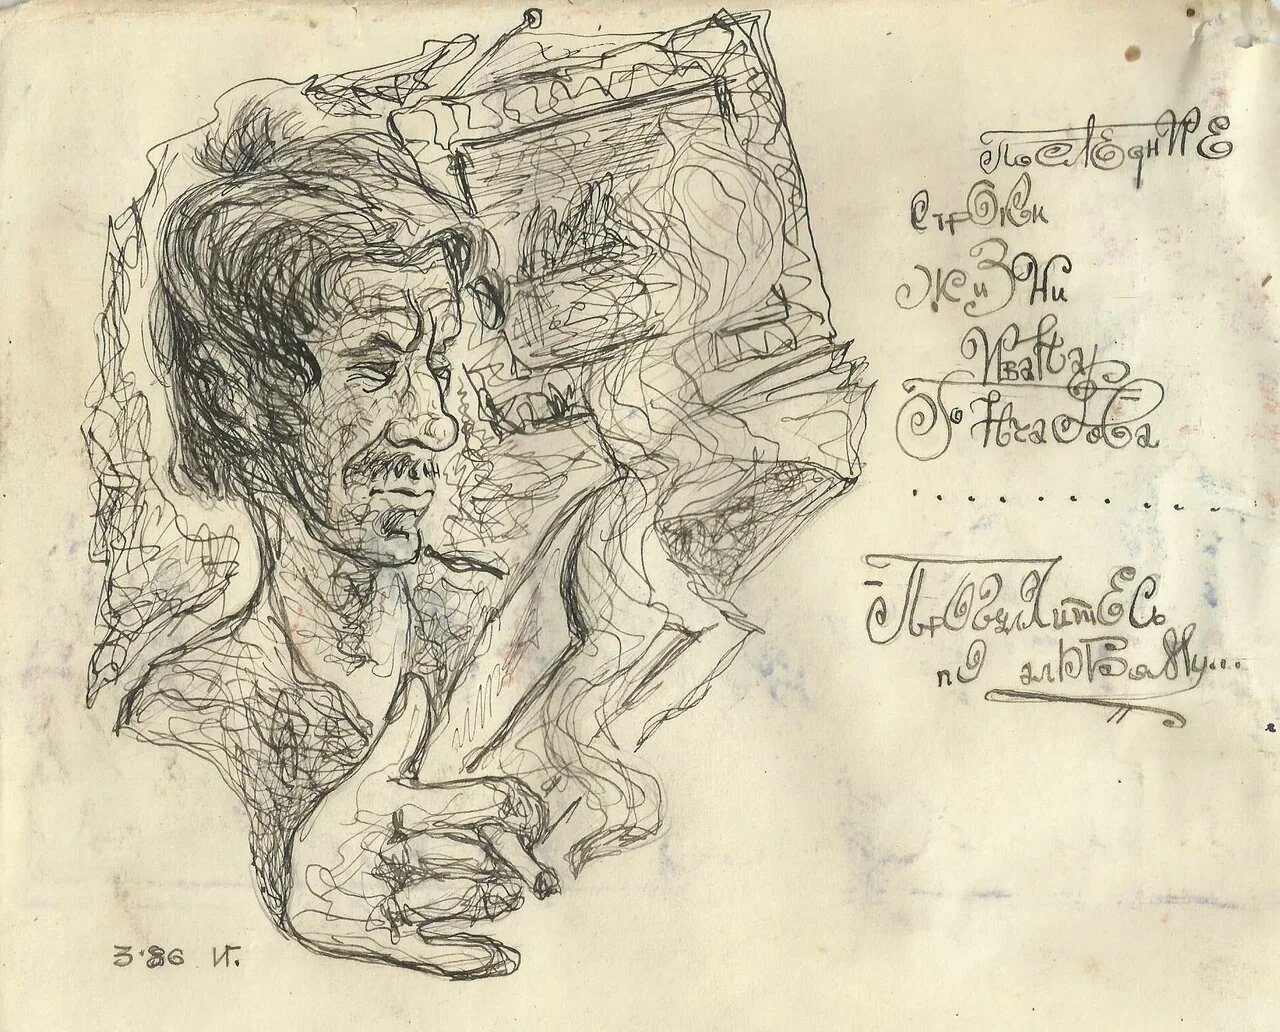 ПОСЛЕДНИЕ
СТРОКИ
ЖИЗНИ
ИВАНА
ГОНЧАРОВА
. . . . . . . . . .
– ПРОЙДИТЕСЬ
ПО АЛЬБОМУ...
3·86 ИГ.